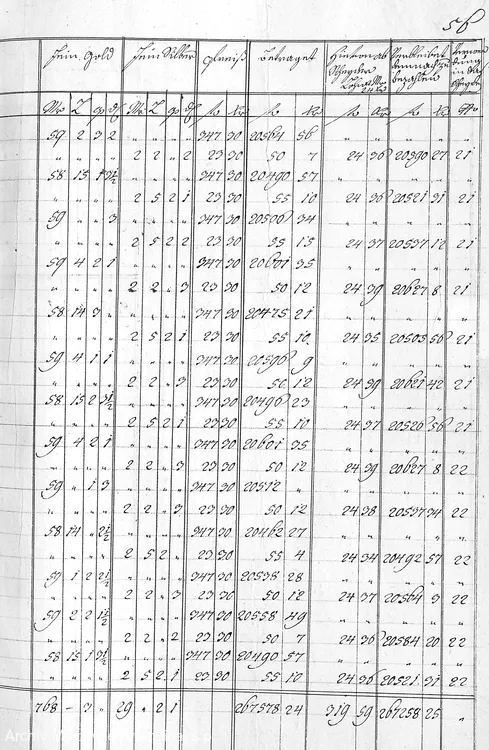 56
Fein Gold Fein Silber Preiß Betraget
Mr L q d Mr L q d fl kr fl kr fl kr fl kr
59 2 3 2 " " " " 347 30 20564 56 " " " " "
" " " " 2 2 " 2 23 30 50 7 24 36 20590 27 21
58 15 1 3½ " " " " 347 30 20490 57 " " " " "
" " " " 2 5 2 1 23 30 55 10 24 36 20521 31 21
59 " " 3 " " " " 347 30 20506 34 " " " " "
" " " " 2 5 2 2 23 30 55 15 24 37 20537 12 21
59 4 2 1 " " " " 347 30 20601 35 " " " " "
" " " " 2 2 " 3 23 30 50 12 24 39 20627 8 21
58 14 3 " " " " " 347 30 20475 21 " " " " "
" " " " 2 5 2 1 23 30 55 10 24 35 20505 56 21
59 4 1 1 " " " " 347 30 20596 9 " " " " "
" " " " 2 2 " 3 23 30 50 12 24 39 20621 42 21
58 15 2 3½ " " " " 347 30 20496 23 " " " " "
" " " " 2 5 2 1 23 30 55 10 24 37 20526 56 21
59 4 2 1 " " " " 347 30 20601 35 " " " " "
" " " " 2 2 " 3 23 30 50 12 24 39 20627 8 22
59 " 1 3 " " " " 347 30 20512 " " " " " "
" " " " 2 2 " 3 23 30 50 12 24 38 20537 34 22
58 14 " 2½ " " " " 347 30 20462 27 " " " " "
" " " " 2 5 2 " 23 30 55 4 24 34 20492 57 22
59 1 2 2½ " " " " 347 30 20538 28 " " " " "
" " " " 2 2 " 3 23 30 50 12 24 37 20564 3 22
59 2 2 1½ " " " " 347 30 20558 49 " " " " "
" " " " 2 2 " 2 23 30 50 7 24 36 20584 20 22
58 15 1 3½ " " " " 347 30 20490 57 " " " " "
" " " " 2 5 2 1 23 30 55 10 24 36 20521 31 22
768 - 3 " 29 " 2 1 267578 24 319 59 267258 25 "